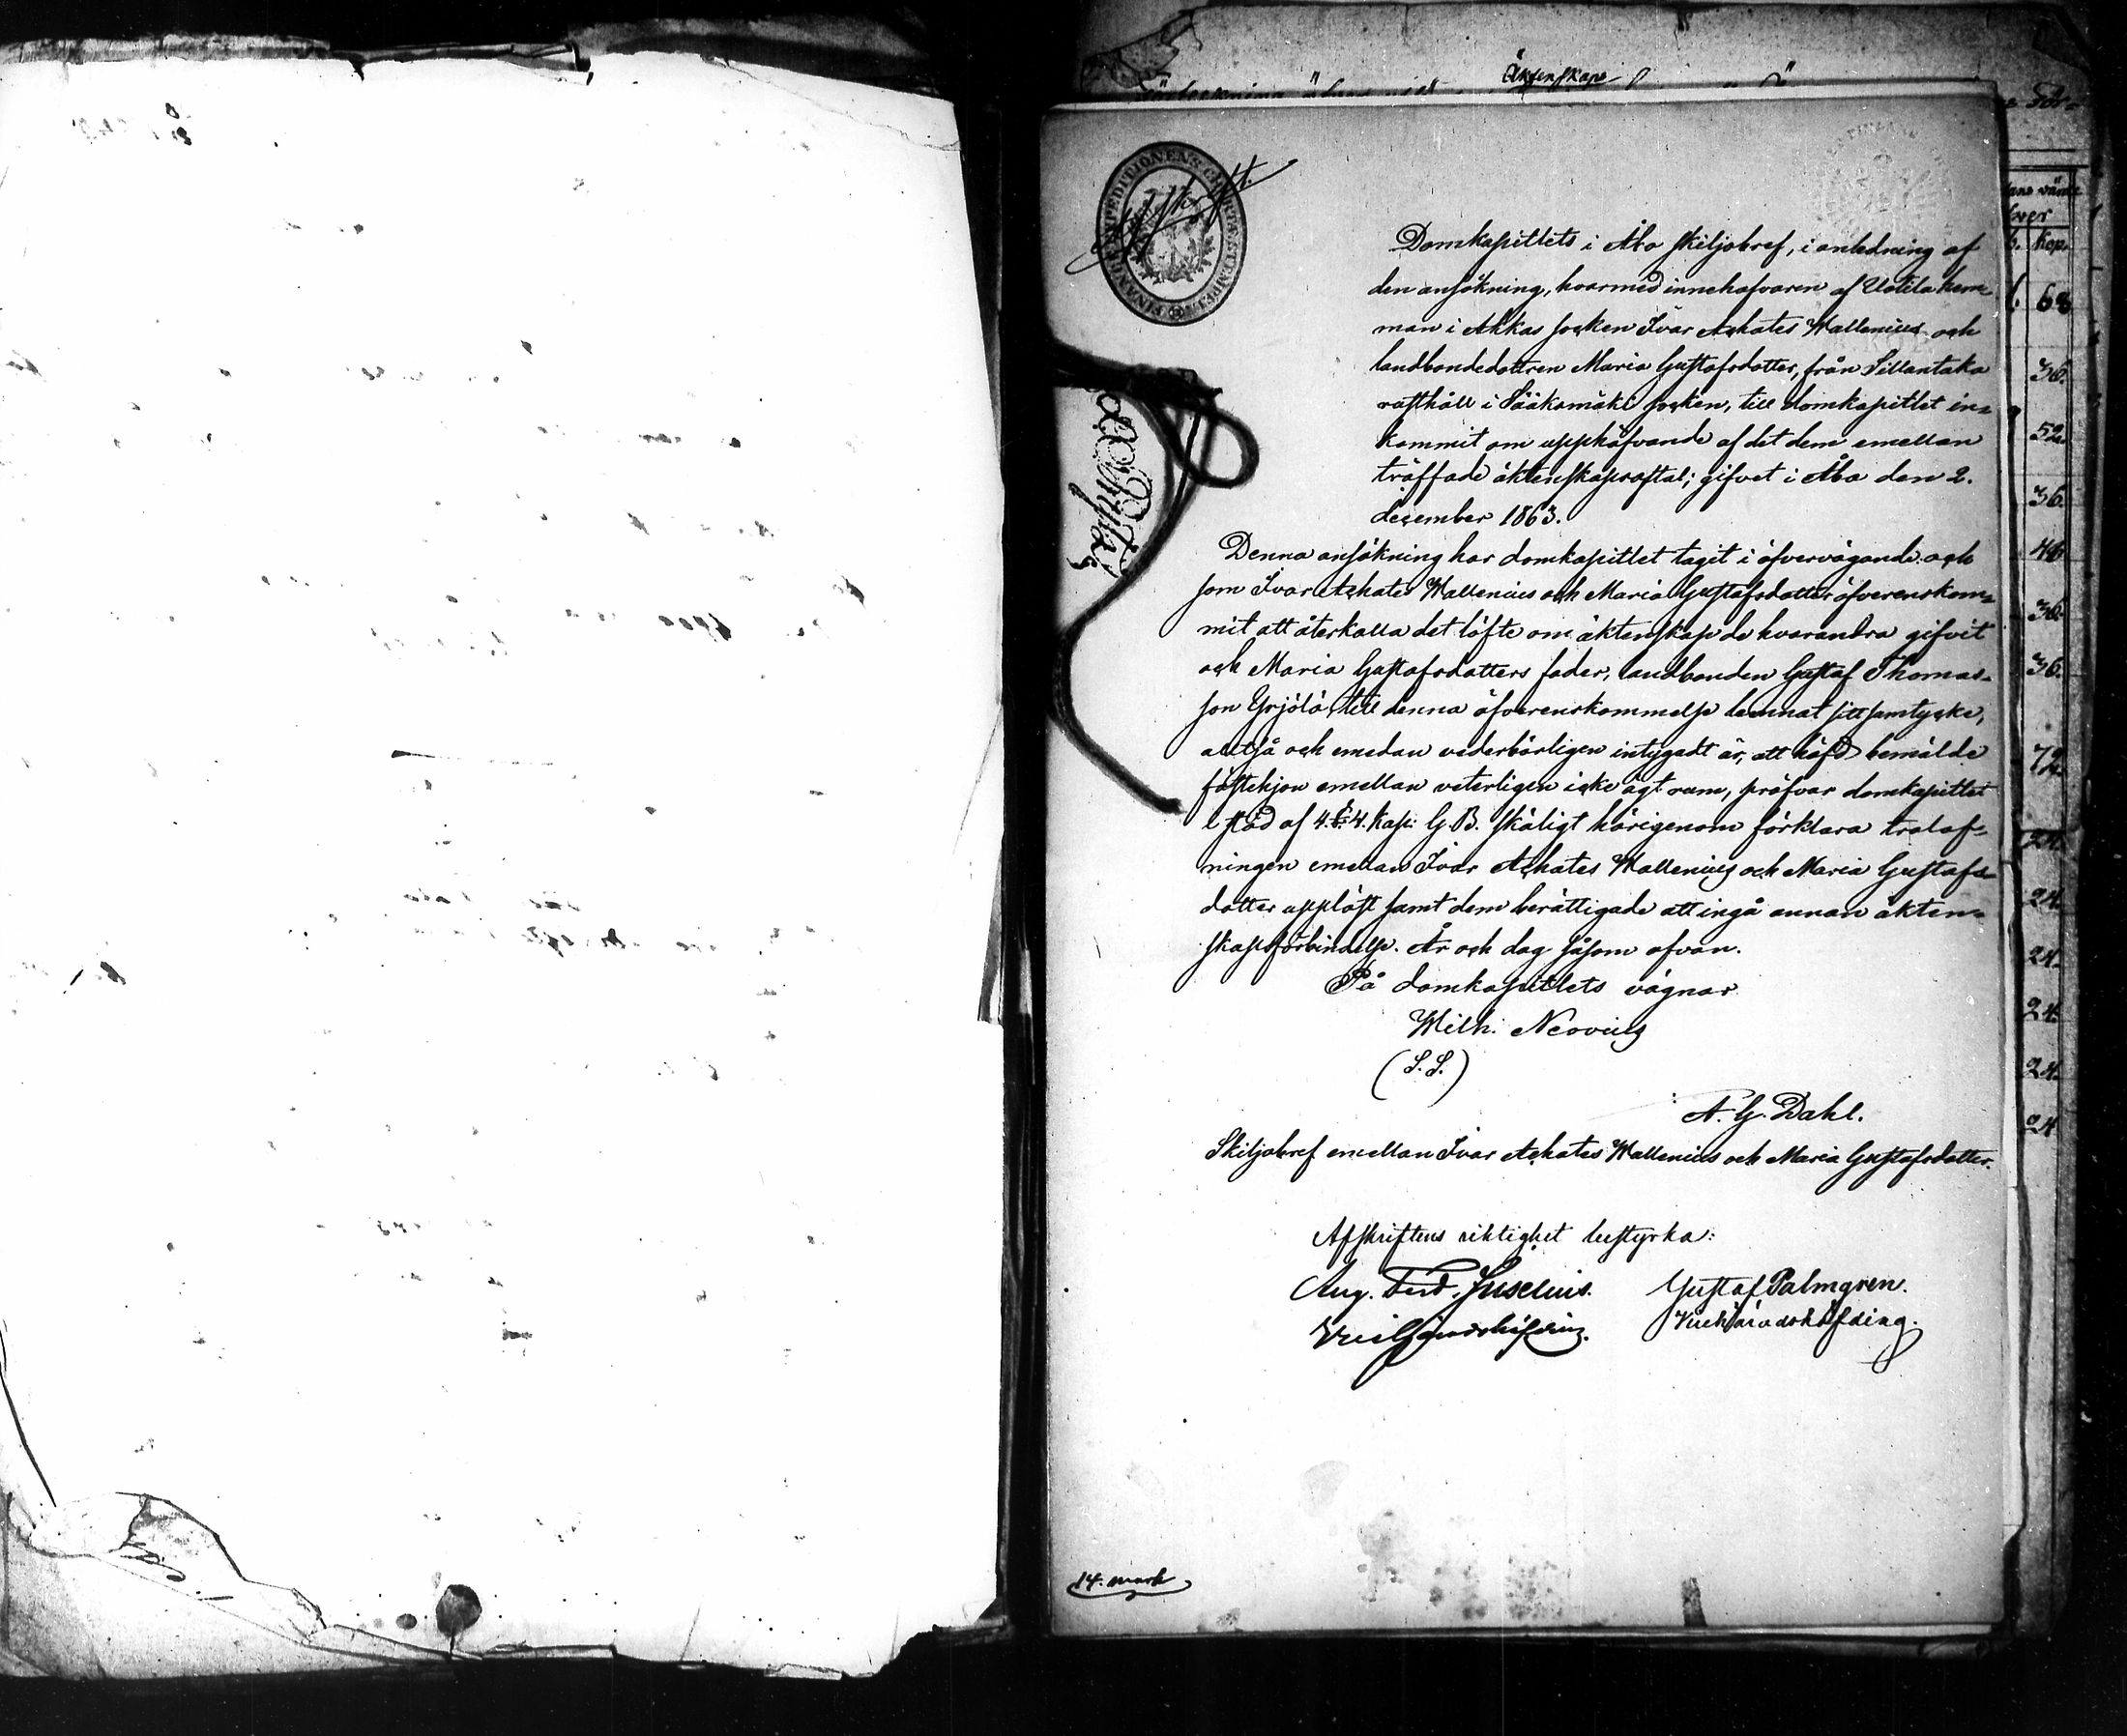 Äktenskaps
Afskrift.
FINANSEXPEDITIONENS CHARTÆSTEMPEL
Domkapitlets i Åbo skiljobref, i anledning af
den ansökning, hvarmed innehafvaren af Uotila hem-
man i Akkas socken Ivar Achates Wallenius och
landbondedottren Maria Gustafsdotter, från Sillantaka
rusthåll i Sääksmäki socken, till domkapitlet in-
kommit om upphäfvande af det dem emellan
träffade äktenskapsaftal; gifvet i Åbo den 2.
december 1863.
Denna ansökning har domkapitlet tagit i öfvervägande och
som Ivar Achates Wallenius och Maria Gustafsdotter öfverenskom-
mit att återkalla det löfte om äktenskap de hvarandra gifvit
och Maria Gustafsdotters fader, landbonden Gustaf Thomas-
son Yrjölä, till denna öfverenskommelse lemnat sitt samtycke,
alltså och emedan vederbörligen intygadt är, att häfd bemälde
fästehjon emellan veterligen icke ägt rum, pröfvar domkapitlet
i stöd af 4. § 4. Kap. G. B. skäligt härigenom förklara trolof-
ningen emellan Ivar Achates Wallenius och Maria Gustafs-
dotter upplöst samt dem berättigade att ingå annan äkten-
skapsförbindelse. År och dag såsom ofvan.
På domkapitlets vägnar
Wilh. Nervius
(S. S.)
A. G. Dahl.
Skiljobref emellan Ivar Achates Wallenius och Maria Gustafsdotter.
Afskriftens riktighet bestyrka:
Aug. Ferd. Juselius. Gustaf Palmgren.
Vicehäradshöfding. Vicehäradshöfding.
14. mark
kop.
68
36.
52.
36.
48
36.
36.
72.
24.
24.
24.
24.
24.
24